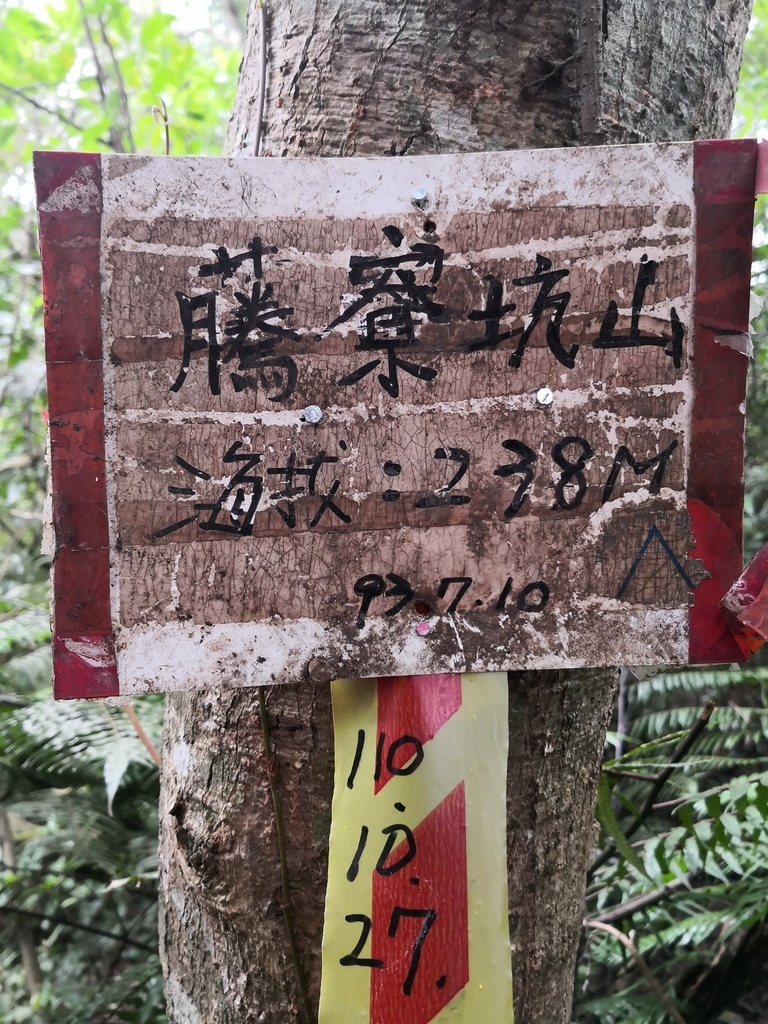 藤寮坑山
海拔:238M
93.7.10
110.
10.
27.